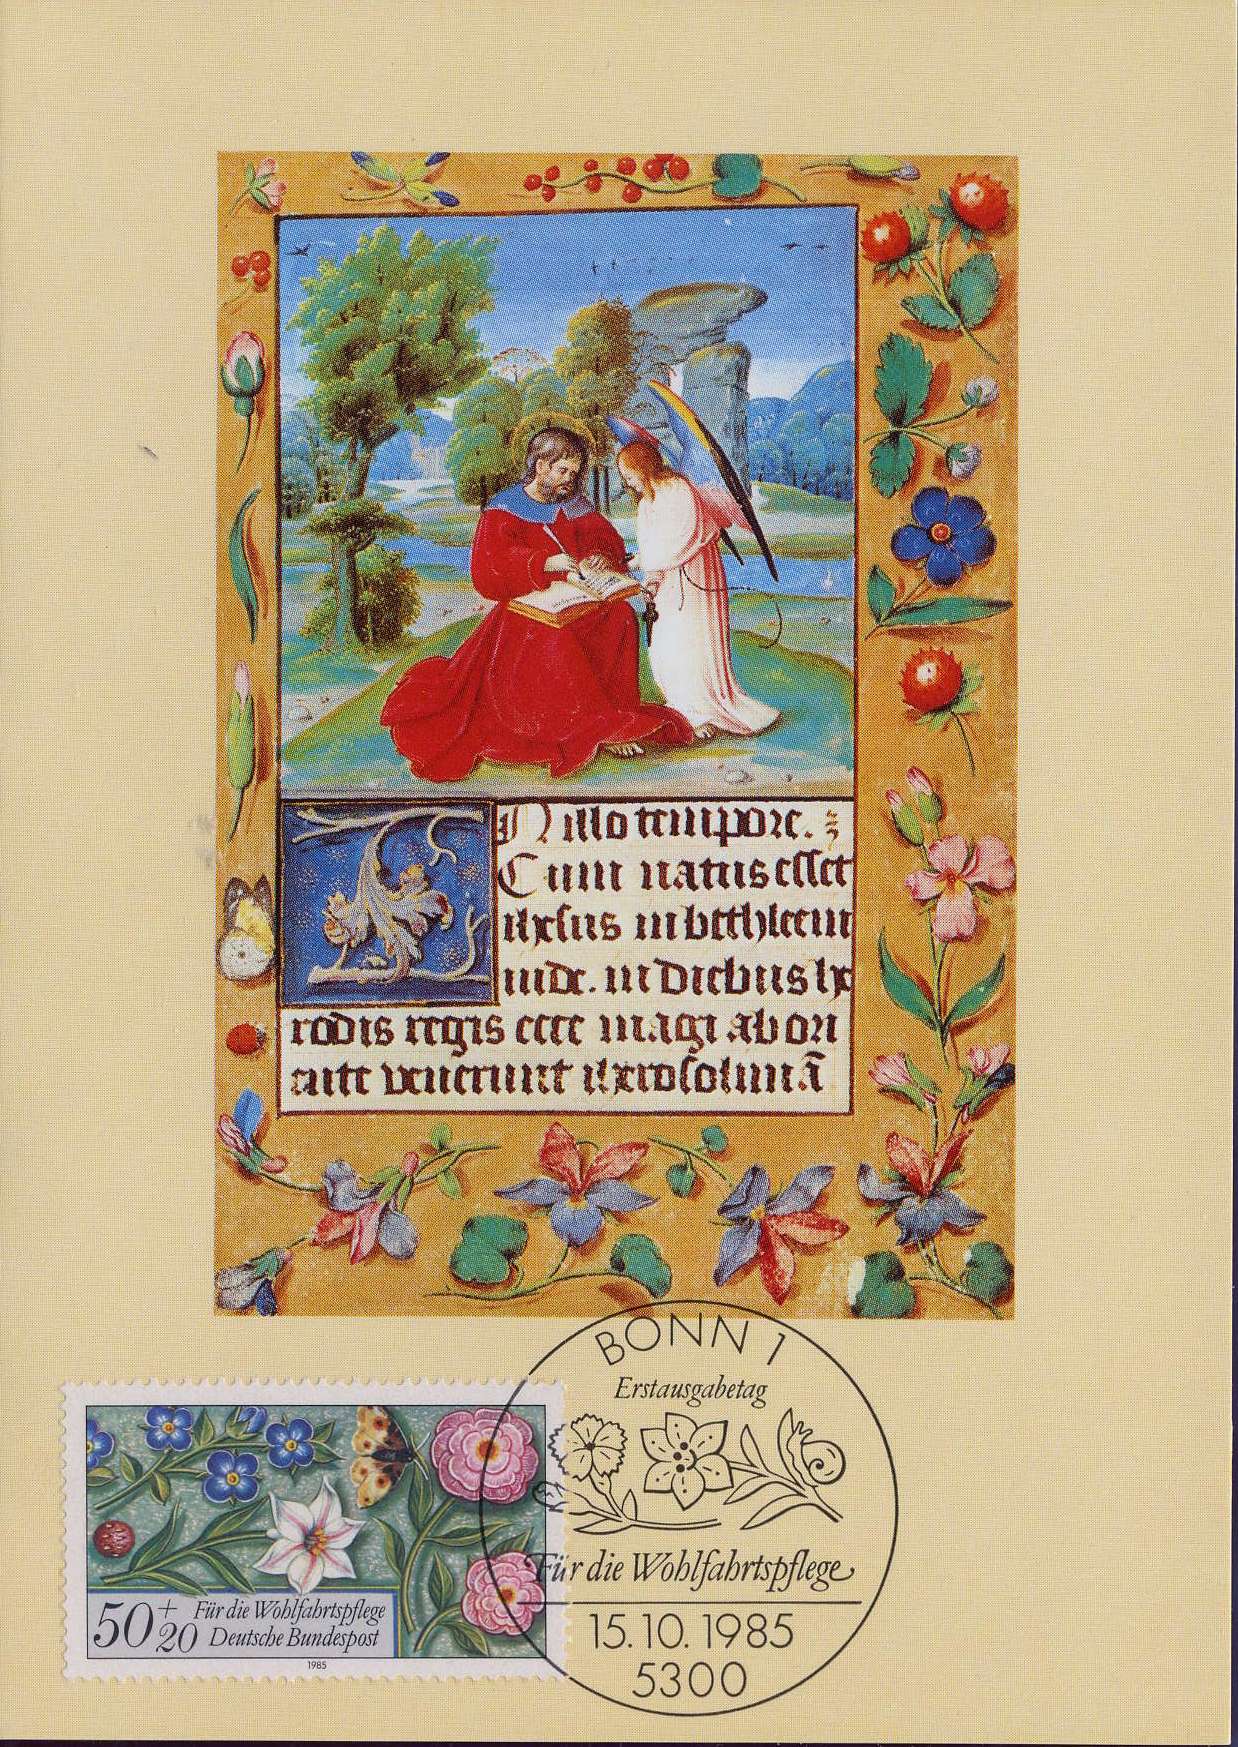 IN illo tempore.
Cum natus esset
ihesus in bethleem
iude. in diebus he
rodis regis ecce magi ab ori
ente venerunt iherosolimā
BONN 1
Erstausgabetag
Für die Wohlfahrtspflege
15.10.1985
5300
50+20 Für die Wohlfahrtspflege
Deutsche Bundespost
1985